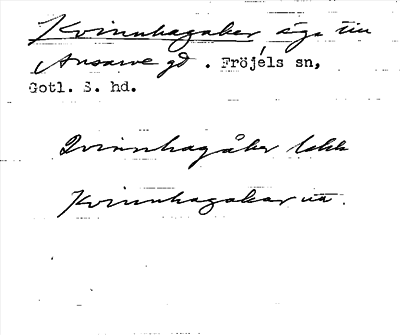 Kvinnhagaker äga till
Ansarve gd. Fröjels sn,
Gotl. S. hd.
Qvinnhagåker lskk
Kvinnhagakar ua.